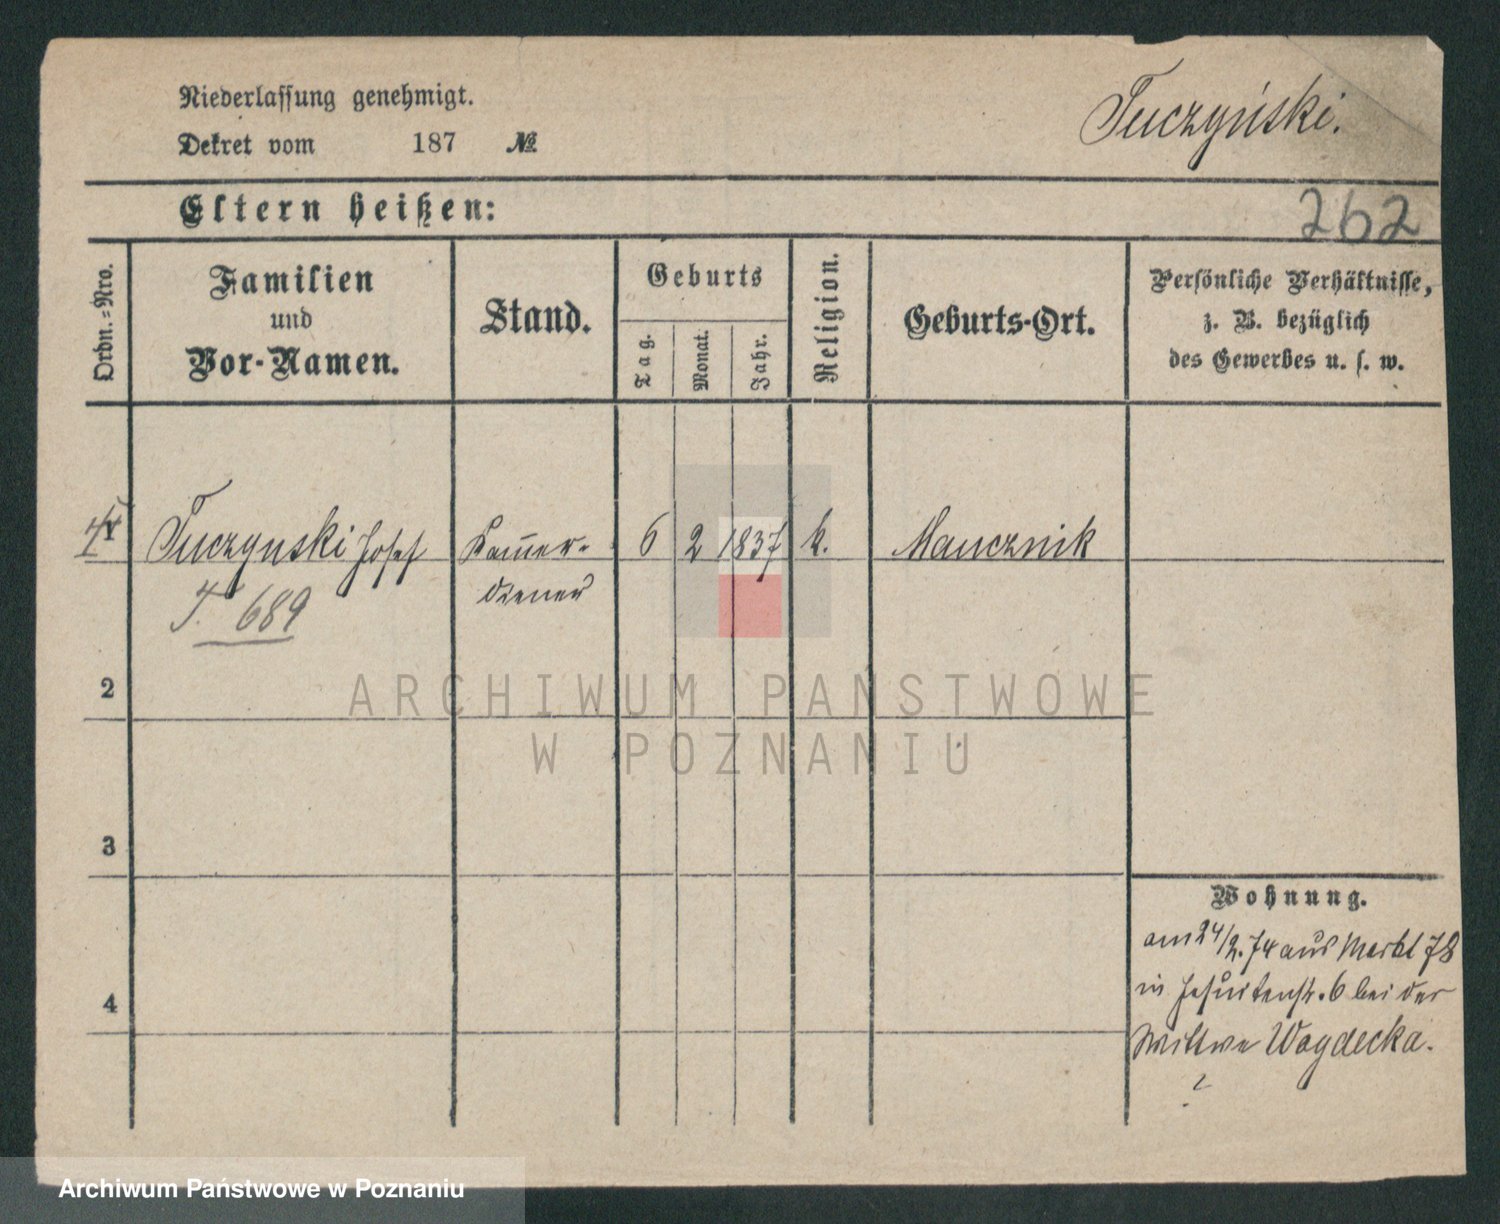 Niederlassung genehmigt.
Tuczyński.
Dekret vom 187 №
Eltern heißen:
262
Ordn.=Nro.
Familien
und
Vor-Namen.
Stand.
Geburts
Tag.
Monat.
Jahr.
Religion.
Geburts-Ort.
Persönliche Verhältnisse,
z. B. bezüglich
des Gewerbes u. s. w.
1 Tuczynski Josef Kam̅er- 6 2 1837 k. Maucznik
diener
T. 689
ARCHIWUM PAŃSTWOWE
W POZNANIU
2
3
4
Wohnung.
am 24/2. 74 aus Markt 78
in Jesuitenstr. 6 bei der
Wittwe Woydecka.
Archiwum Państwowe w Poznaniu